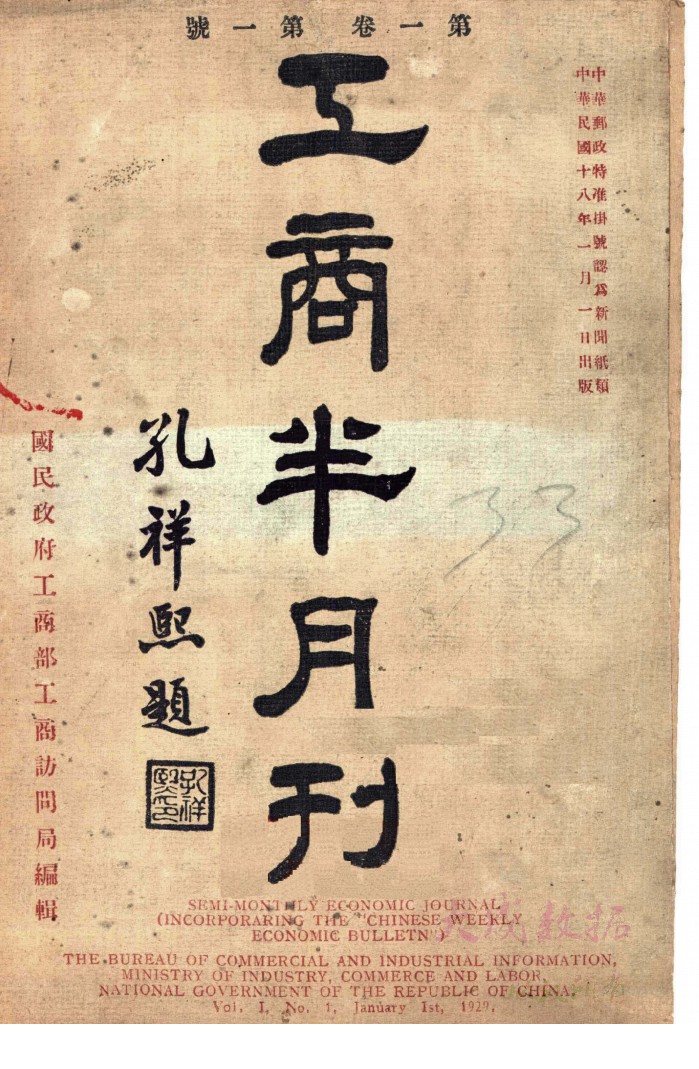 號一第 卷一第
中華郵政特准掛號認爲新聞紙類
中華民國十八年一月一日出版
工商半月刊
孔祥熙題
孔祥熙印
國民政府工商部工商訪問局編輯
33
SEMI-MONTHLY ECONOMIC JOURNAL
(INCORPORARING THE "CHINESE WEEKLY
ECONOMIC BULLETN")
大成数据
THE BUREAU OF COMMERCIAL AND INDUSTRIAL INFORMATION,
MINISTRY OF INDUSTRY, COMMERCE AND LABOR,
NATIONAL GOVERNMENT OF THE REPUBLIC OF CHINA.
Vol. I, No. 1, January 1st, 1929.